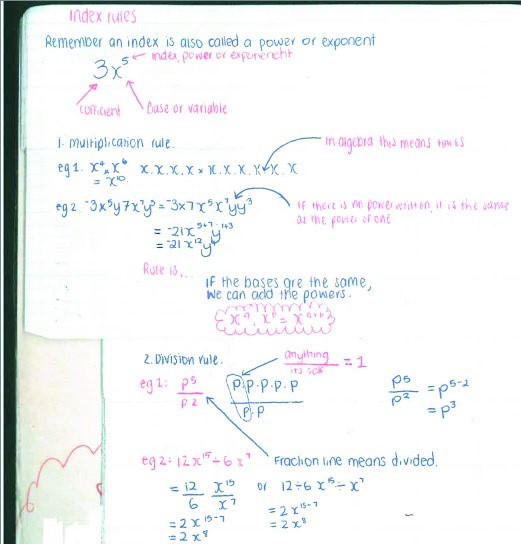 Index rules
Remember an index is also called a power or exponent
3x⁵ ← index, power or exponenent
coefficient Base or variable
1. multiplication rule.
eg 1. x⁴ × x⁶ x.x.x.x × x.x.x.x.x.x in algebra this means times
= x¹⁰
eg 2 ⁻3x⁵y7x⁷y³ = ⁻3×7x⁵x⁷yy³ If there is no power written, it is the same
as the power of one
= ⁻21x⁵⁺⁷y¹⁺³
= ⁻21x¹²y⁴
Rule is...
IF the bases are the same,
We can add the powers.
xᵃ. xᵇ = xᵃ⁺ᵇ
2. Division rule. anything / its self = 1
eg 1: p5 / p2 p.p.p.p.p / p.p p5 / p² = p⁵⁻²
= p³
eg 2: 12x¹⁵ ÷ 6x⁷ Fraction line means divided.
= 12/6 x¹⁵/x⁷ or 12÷6 x¹⁵ ÷ x⁷
= 2x¹⁵⁻⁷ = 2x¹⁵⁻⁷
= 2x⁸ = 2x⁸